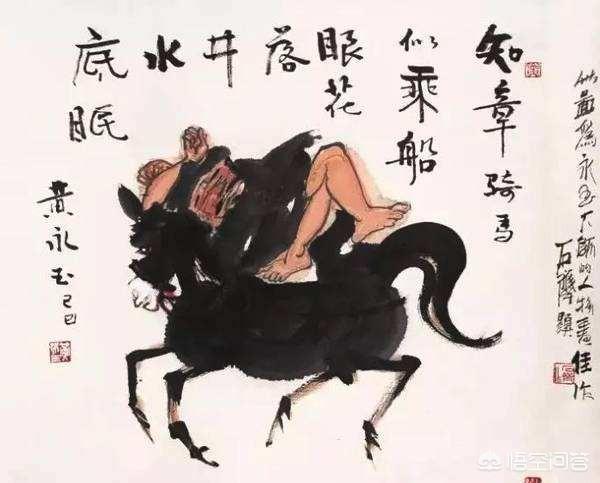 知章骑马
似乘船
眼花
落
井
水
底眠
黄永玉己巳
此畫為永玉大师的人物畫佳作
悟空问答